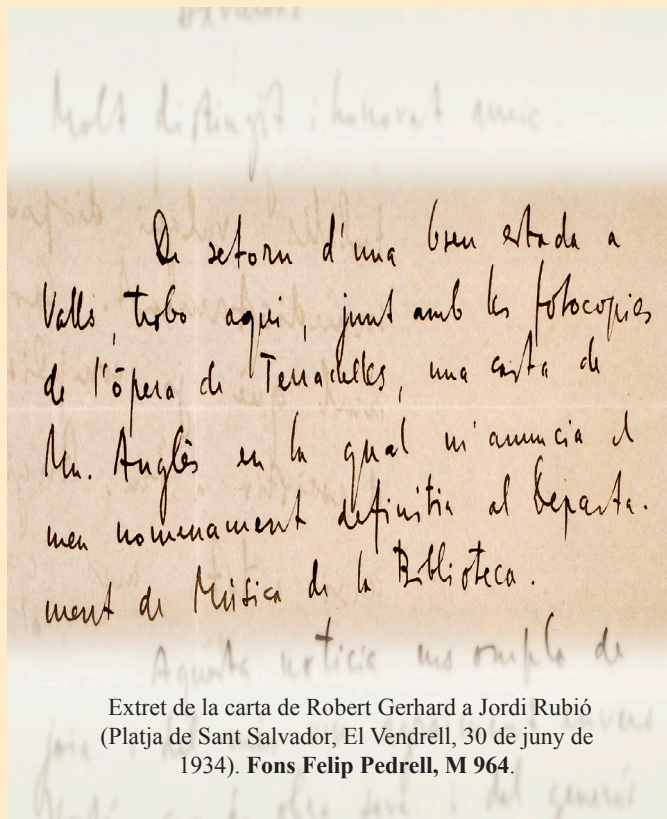 Molt distingit i honorat amic.
De retorn d'una breu estada a
Valls, trobo aquí, junt amb les fotocopies
de l'òpera de Terradelles, una carta de
Mn. Anglès en la qual m'anuncia el
meu nomenament definitiu al Departa-
ment de Música de la Biblioteca.
Aquesta noticia ens omple de
Extret de la carta de Robert Gerhard a Jordi Rubió
(Platja de Sant Salvador, El Vendrell, 30 de juny de
1934). Fons Felip Pedrell, M 964.